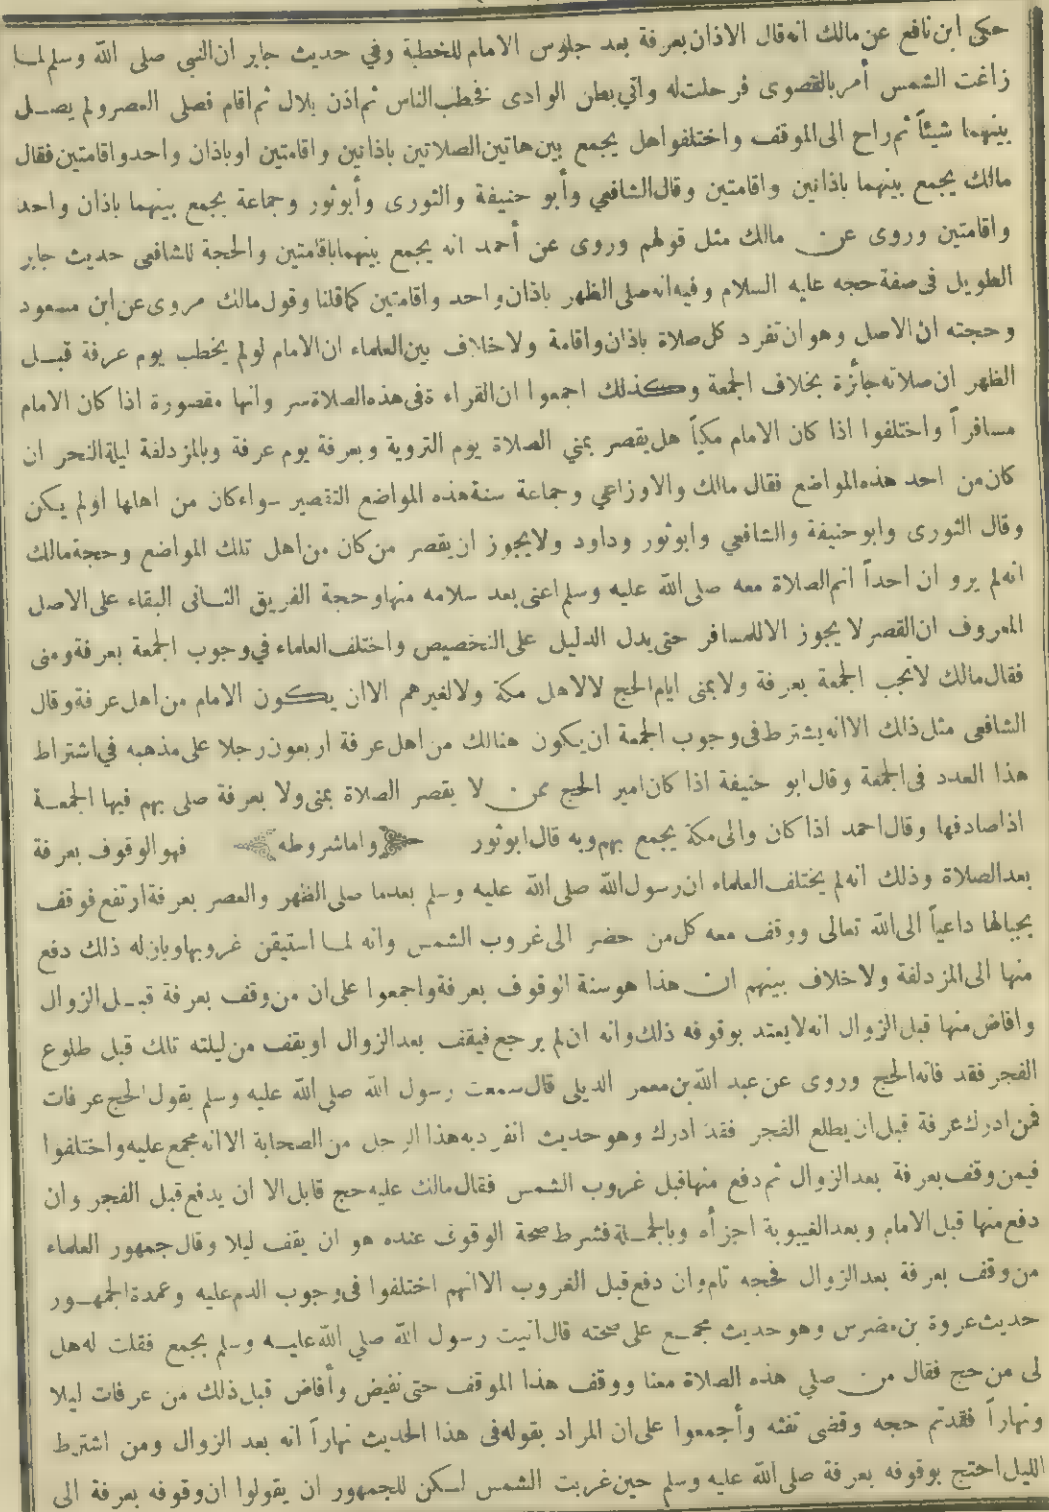 حكى ابن نافع عن مالك انه قال الاذان بعرفة بعد جلوس الامام للخطبة وفي حديث جابر ان النبى صلى الله وسلم لما
زاغت الشمس أمر بالقصوى فرحلت له واتي بطن الوادى فخطب الناس ثم اذن بلال ثم اقام فصلى العصر ولم يصل
بينهما شيئاً ثم راح الى الموقف واختلفوا هل يجمع بين هاتين الصلاتين باذانين واقامتين او باذان واحد واقامتين فقال
مالك يجمع بينهما باذانين واقامتين وقال الشافعي وأبو حنيفة والثورى وأبو ثور وجماعة يجمع بينهما باذان واحد
واقامتين وروى عن مالك مثل قولهم وروى عن أحمد انه يجمع بينهما باقامتين والحجة للشافعى حديث جابر
الطويل فى صفة حجه عليه السلام وفيه انه صلى الظهر باذان واحد واقامتين كما قلنا وقول مالك مروى عن ابن مسعود
وحجته ان الاصل وهو ان تفرد كل صلاة باذان واقامة ولا خلاف بين العلماء ان الامام لو لم يخطب يوم عرفة قبل
الظهر ان صلاته جائزة بخلاف الجمعة وكذلك اجمعوا ان القراءة فى هذه الصلاة سر وانها مقصورة اذا كان الامام
مسافراً واختلفوا اذا كان الامام مكياً هل يقصر بمني الصلاة يوم التروية وبعرفة يوم عرفة وبالمزدلفة ليلة النحر ان
كان من احد هذه المواضع فقال مالك والاوزاعي وجماعة سنة هذه المواضع التقصير سواء كان من اهلها او لم يكن
وقال الثورى وابو حنيفة والشافعي وابو ثور وداود ولا يجوز ان يقصر من كان من اهل تلك المواضع وحجة مالك
انه لم يرو ان احداً اتم الصلاة معه صلى الله عليه وسلم اعنى بعد سلامه منها وحجة الفريق الثانى البقاء على الاصل
المعروف ان القصر لا يجوز الا للمسافر حتى يدل الدليل على التخصيص واختلف العلماء في وجوب الجمعة بعرفة ومنى
فقال مالك لا تجب الجمعة بعرفة ولا بمنى ايام الحج لا لاهل مكة ولا لغيرهم الا ان يكون الامام من اهل عرفة وقال
الشافعى مثل ذلك الا انه يشترط فى وجوب الجمعة ان يكون هنالك من اهل عرفة اربعون رجلا على مذهبه في اشتراط
هذا العدد فى الجمعة وقال ابو حنيفة اذا كان امير الحج ممن لا يقصر الصلاة بمنى ولا بعرفة صلى بهم فيها الجمعة
اذا صادفها وقال احمد اذا كان والى مكة يجمع بهم وبه قال ابو ثور واما شروطه فهو الوقوف بعرفة
بعد الصلاة وذلك انه لم يختلف العلماء ان رسول الله صلى الله عليه وسلم بعد ما صلى الظهر والعصر بعرفة ارتفع فوقف
بجبالها داعياً الى الله تعالى ووقف معه كل من حضر الى غروب الشمس وانه لما استيقن غروبها وبان له ذلك دفع
منها الى المزدلفة ولا خلاف بينهم ان هذا هو سنة الوقوف بعرفة واجمعوا على ان من وقف بعرفة قبل الزوال
وافاض منها قبل الزوال انه لا يعتد بوقوفه ذلك وانه ان لم يرجع فيقف بعد الزوال او يقف من ليلته تلك قبل طلوع
الفجر فقد فاته الحج وروى عن عبد الله بن معمر الديلى قال سمعت رسول الله صلى الله عليه وسلم يقول الحج عرفات
فمن ادرك عرفة قبل ان يطلع الفجر فقد ادرك وهو حديث انفرد به هذا الرجل من الصحابة الا انه مجمع عليه واختلفوا
فيمن وقف بعرفة بعد الزوال ثم دفع منها قبل غروب الشمس فقال مالك عليه حج قابل الا ان يدفع قبل الفجر وان
دفع منها قبل الامام وبعد الغيبوبة اجزأه وبالجملة فشرط صحة الوقوف عنده هو ان يقف ليلا وقال جمهور العلماء
من وقف بعرفة بعد الزوال فحجه تام وان دفع قبل الغروب الا انهم اختلفوا فى وجوب الدم عليه وعمدة الجمهور
حديث عروة بن مضرس وهو حديث مجمع على صحته قال اتيت رسول الله صلي الله عليه وسلم بجمع فقلت له هل
لى من حج فقال من صلي هذه الصلاة معنا ووقف هذا الموقف حتى نفيض وأفاض قبل ذلك من عرفات ليلا
ونهاراً فقد تم حجه وقضى تفثه وأجمعوا على ان المراد بقوله فى هذا الحديث نهاراً انه بعد الزوال ومن اشترط
الليل احتج بوقوفه بعرفة صلى الله عليه وسلم حين غربت الشمس لكن للجمهور ان يقولوا ان وقوفه بعرفة الى